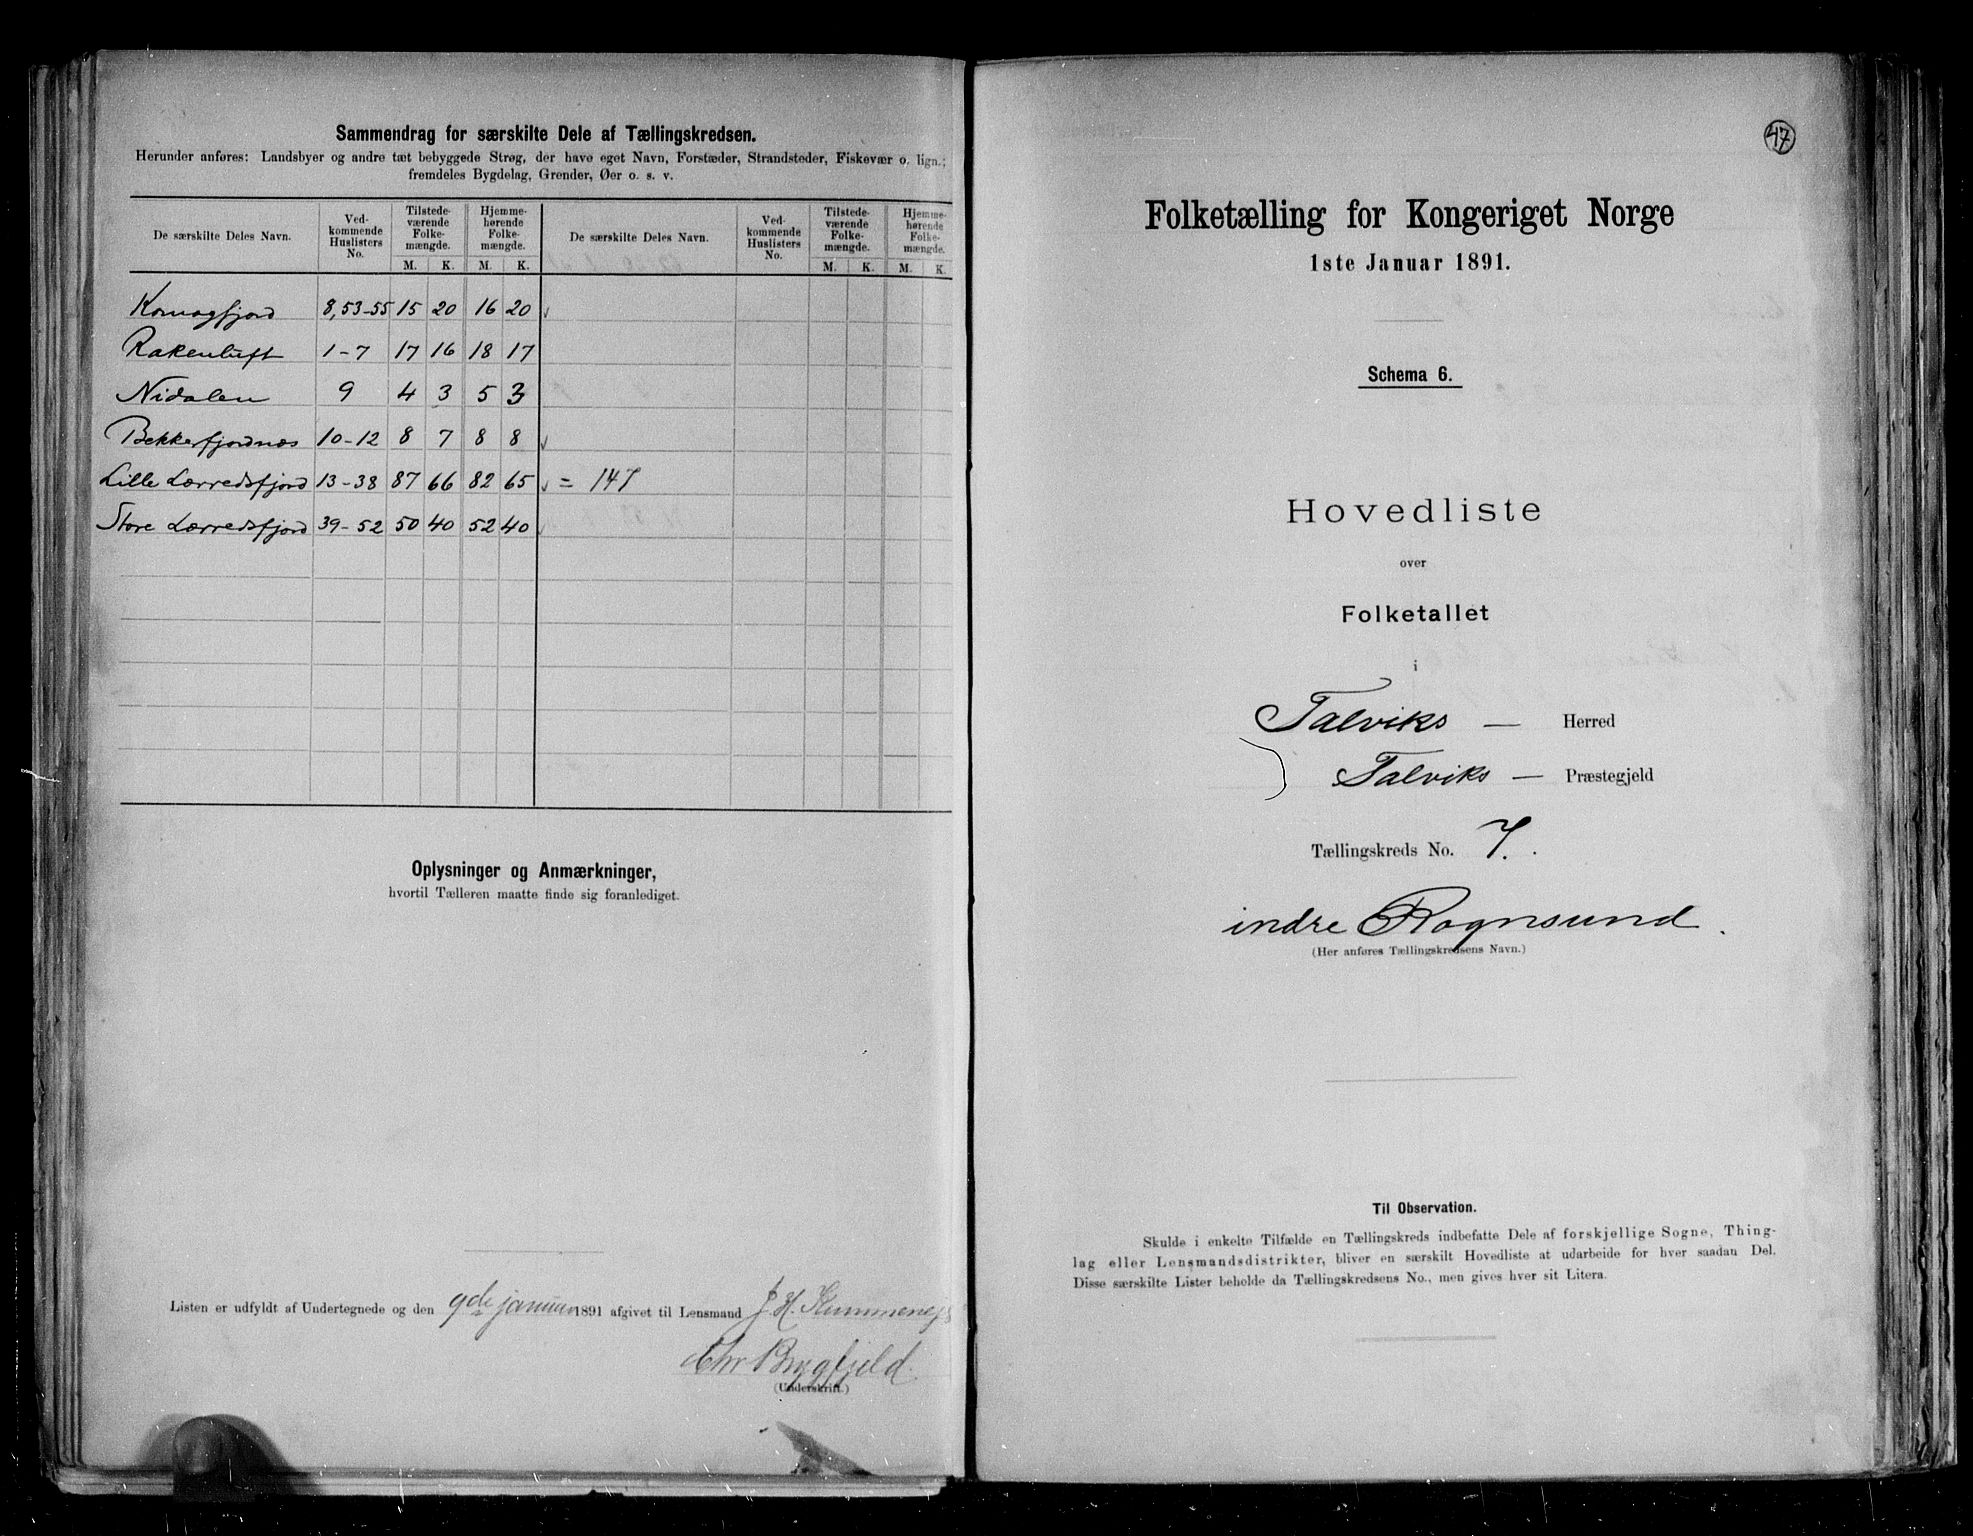 Sammendrag for særskilte Dele af Tællingskredsen.
Herunder anføres: Landsbyer og andre tæt bebyggede Strøg, der have eget Navn, Forstæder, Strandsteder, Fiskevær o. lign.;
fremdeles Bygdelag, Grender, Øer o. s. v.
De særskilte Deles Navn. Ved-kommende Huslisters No. Tilstede-værende Folke-mængde. Hjemme-hørende Folke-mængde. De særskilte Deles Navn. Ved-kommende Huslisters No. Tilstede-værende Folke-mængde. Hjemme-hørende Folke-mængde.
M. K. M. K. M. K. M. K.
Komagfjord 8,53-55 15 20 16 20
Rakenluft 1-7 17 16 18 17
Nidalen 9 4 3 5 3
Bekkerfjordnæs 10-12 8 7 8 8
Lille Lærredsfjord 13-38 87 66 82 65 = 147
Store Lærredsfjord 39-52 50 40 52 40
Oplysninger og Anmærkninger,
hvortil Tælleren maatte finde sig foranlediget.
Listen er udfyldt af Undertegnede og den 9de januar 1891 afgivet til Lensmand J. H.
Chr Brygfjeld
(Underskrift.)
47
Folketælling for Kongeriget Norge
1ste Januar 1891.
Schema 6.
Hovedliste
over
Folketallet
i
Talviks — Herred
Talviks — Præstegjeld
Tællingskreds No. 7.
indre Rognsund.
(Her anføres Tællingskredsens Navn.)
Til Observation.
Skulde i enkelte Tilfælde en Tællingskreds indbefatte Dele af forskjellige Sogne, Thing-
lag eller Lensmandsdistrikter, bliver en særskilt Hovedliste at udarbeide for hver saadan Del.
Disse særskilte Lister beholde da Tællingskredsens No., men gives hver sit Litera.